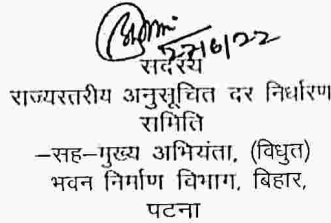 27/6/22
सदस्य
राज्यस्तरीय अनुसूचित दर निर्धारण
समिति
–सह–मुख्य अभियंता, (विधुत)
भवन निर्माण विभाग, बिहार,
पटना